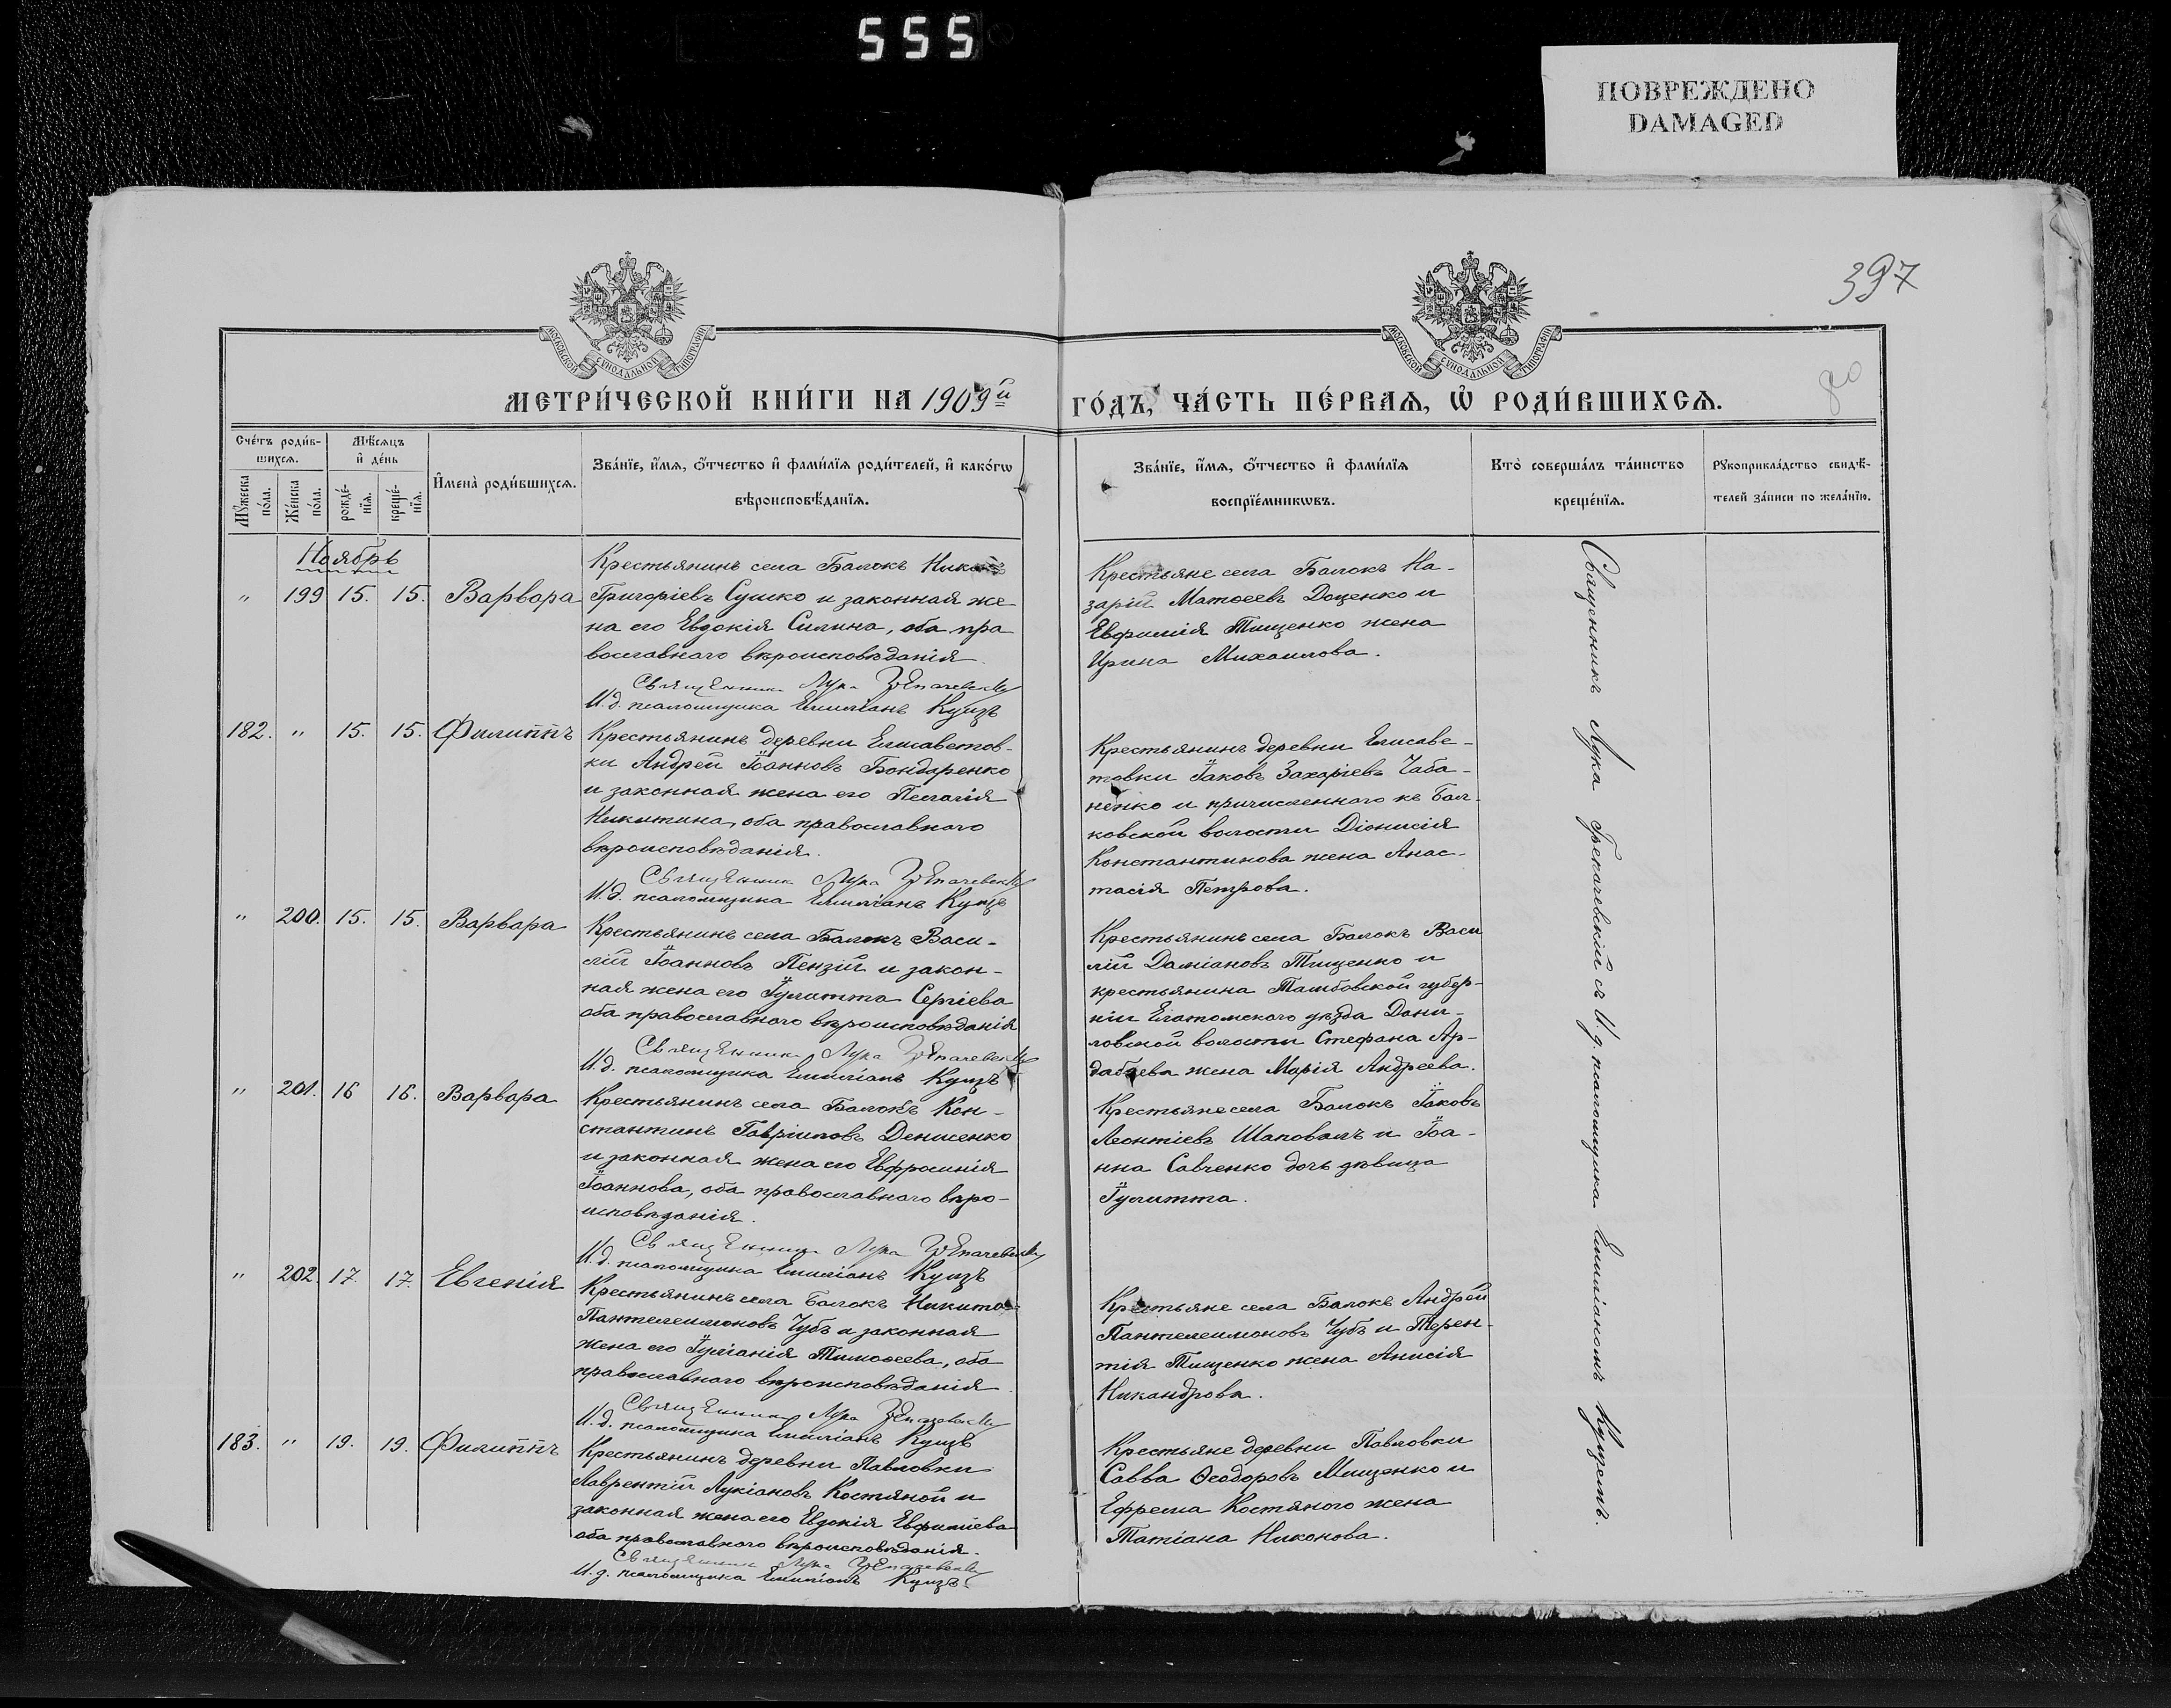 555
ПОВРЕЖДЕНО
DAMAGED
397
80
МОСКОВСКОЙ СѴНОДАЛЬНОЙ ТИПОГРАФІИ
МОСКОВСКОЙ СѴНОДАЛЬНОЙ ТИПОГРАФІИ
МЕТРИ́ЧЕСКОЙ КНИ́ГИ НА 1909й
ГО́ДЪ, ЧА́СТЬ ПЕ́РВАѦ, Ѡ҆ РОДИ́ВШИХСѦ.
Сче́тъ роди́в-
шихсѧ.
Мꙋ́жеска по́ла.
Же́нска по́ла.
Мѣ́сѧцъ
и҆ де́нь
рожде́-
нїѧ.
креще́-
нїѧ.
И҆мена̀ роди́вшихсѧ.
Зва́нїе, и҆́мѧ, ѻ҆́тчество и҆ фами́лїѧ роди́телей, и҆ како́гѡ
вѣроисповѣ́данїѧ.
Зва́нїе, и҆́мѧ, ѻ҆́тчество и҆ фами́лїѧ
воспрїе́мникѡвъ.
Кто̀ соверша́лъ та́инство
креще́нїѧ.
Рꙋкоприкла́дство свидѣ́-
телей за́писи по жела́нїю.
Ноябрь
" 199 15. 15. Варвара
Крестьянинъ села Балокъ
Григоріевъ Сушко и законная же
на его Евдокія Силина, оба пра
вославнаго вѣроисповѣданія.
Священникъ Лука
И.д. псаломщика Емиліанъ Куцъ
Крестьяне села Балокъ На-
зарій Матѳеевъ Доценко и
Евфимія Тищенко жена
Ирина Михаилова.
182. " 15. 15. Филиппъ
Крестьянинъ деревни Елисаветов-
ки Андрей Іоанновъ Бондаренко
и законная жена его Пелагія
Никитина, оба православнаго
вѣроисповѣданія.
Священникъ Лука
И.д. псаломщика Емиліанъ Куцъ
Крестьянинъ деревни Елисаве-
товки Іаковъ Захаріевъ Чаба-
ненко и причисленнаго къ Бал-
ковской волости Діонисія
Константинова жена Анас-
тасія Петрова.
" 200. 15. 15. Варвара
Крестьянинъ села Балокъ Васи-
лій Іоанновъ Пензій и закон-
ная жена его Іулитта Сергіева
оба православнаго вѣроисповѣданія
Священникъ Лука
И.д. псаломщика Емиліанъ Куцъ
Крестьянинъ села Балокъ Васи
лій Даміановъ Тищенко и
крестьянина Тамбовской губер-
ніи Елатомскаго уѣзда Дани-
ловской волости Стефана Ар-
дабьева жена Марія Андреева.
" 201. 16 16. Варвара
Крестьянинъ села Балокъ Кон-
стантинъ Гавріиловъ Денисенко
и законная жена его Евфросинія
Іоаннова, оба православнаго вѣро-
исповѣданія.
Священникъ Лука
И.д. псаломщика Емиліанъ Куцъ
Крестьяне села Балокъ Іаковъ
Леонтіевъ Шаповалъ и Іоа-
нна Савченко дочь дѣвица
Іулитта.
" 202. 17. 17. Евгенія
Крестьянинъ села Балокъ Никита
Пантелеимоновъ Чубъ и законная
жена его Іуліанія Тимоѳеева, оба
православнаго вѣроисповѣданія.
Священникъ Лука
И.д. псаломщика Емиліанъ Куцъ
Крестьяне села Балокъ Андрей
Пантелеимоновъ Чубъ и Терен-
тія Тищенко жена Анисія
Никандрова.
183. " 19. 19. Филиппъ
Крестьянинъ деревни Павловки
Лаврентій Лукіановъ Костяной и
законная жена его Евдокія Евфиміева
оба православнаго вѣроисповѣданія.
Священникъ Лука
И.д. псаломщика Емиліанъ Куцъ.
Крестьяне деревни Павловки
Савва Ѳеодоровъ Мищенко и
Ефрема Костяного жена
Татіана Никонова.
Священникъ Лука съ И.д. псаломщика Емиліаномъ Куцемъ.